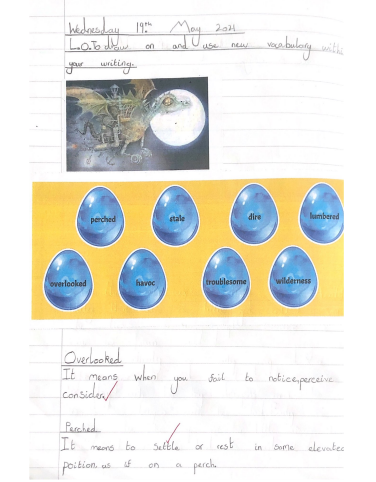 Wednesday 19th May 2021
L.O. To draw on and use new vocabulary within
your writing.
perched stale dire lumbered
overlooked havoc troublesome wilderness
Overlooked
It means when you fail to notice, perceive
consider.
Perched
It means to settle or rest in some elevated
poition us if on a perch.